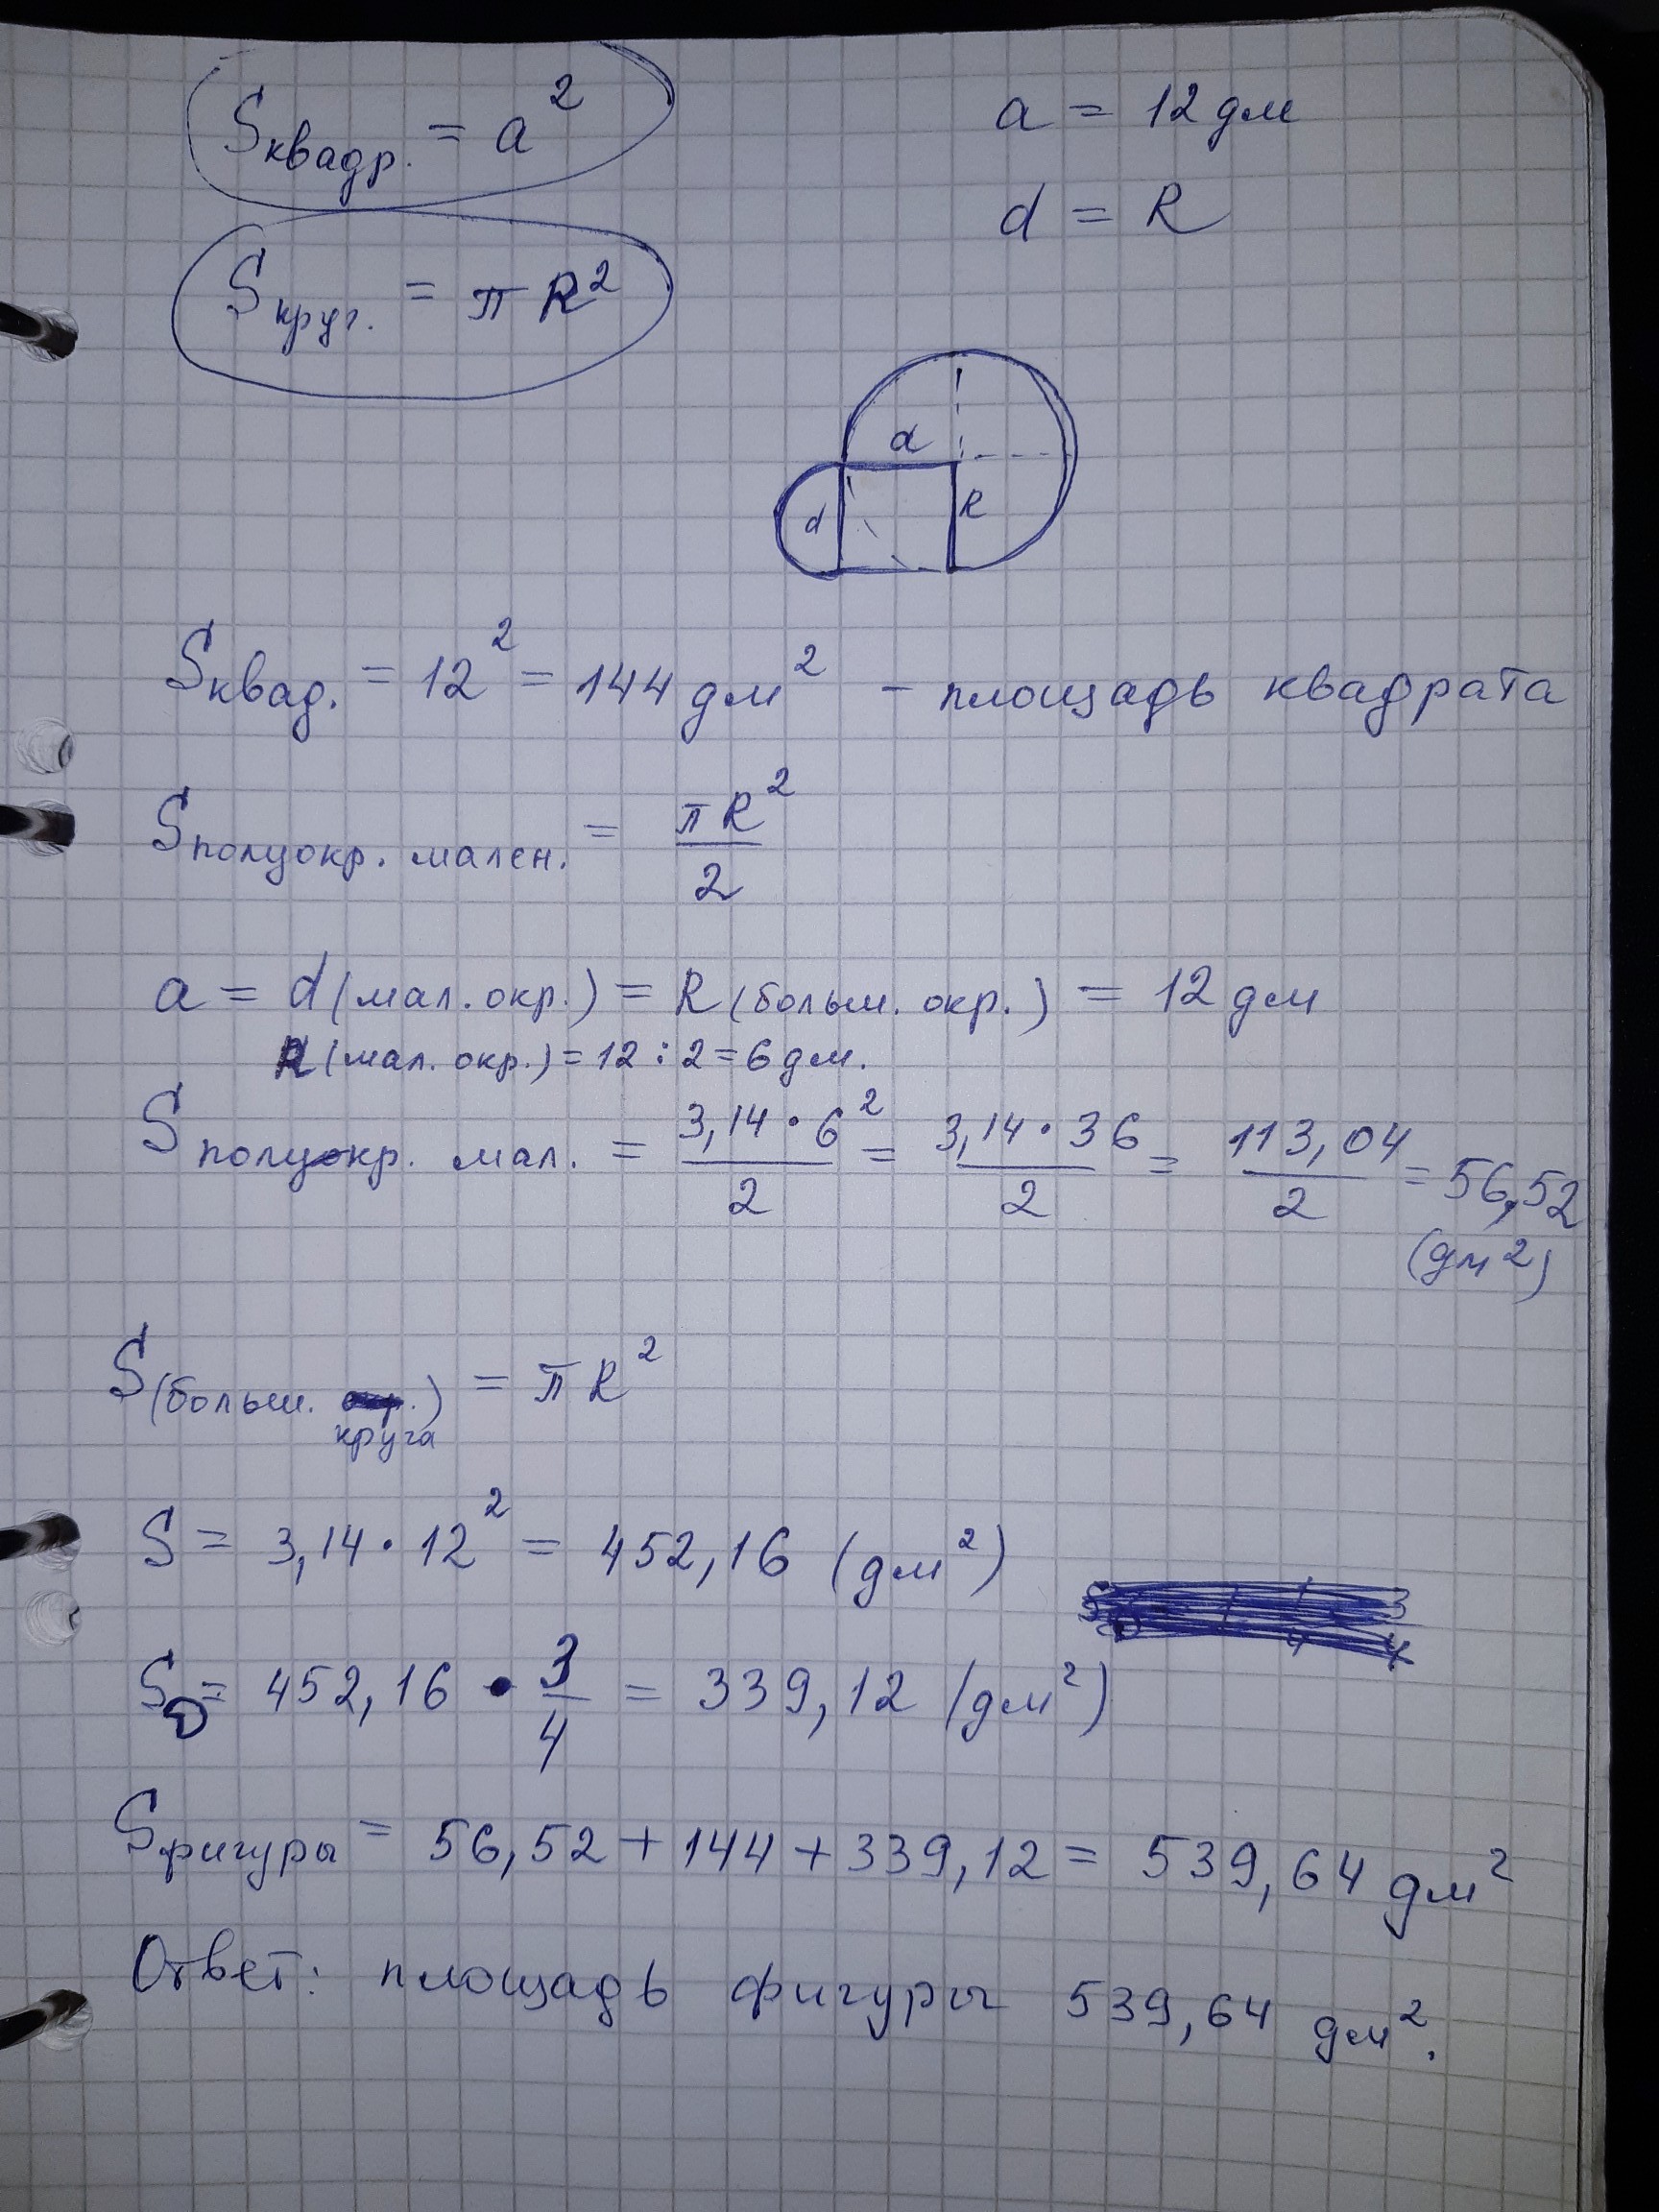 Sквадр. = a²
a = 12 дм
d = R
Sкруг. = πR²
d
d
R
Sквад. = 12² = 144 дм² – площадь квадрата
Sполуокр. мален. = πR²/2
a = d (мал. окр.) = R (больш. окр.) = 12 дм
R (мал. окр.) = 12 : 2 = 6 дм.
Sполуокр. мал. = 3,14 · 6²/2 = 3,14 · 36/2 = 113,04/2 = 56,52 (дм²)
S(больш. круга) = πR²
S = 3,14 · 12² = 452,16 (дм²)
S = 452,16 · 3/4 = 339,12 (дм²)
Sфигуры = 56,52 + 144 + 339,12 = 539,64 дм²
Ответ: площадь фигуры 539,64 дм².